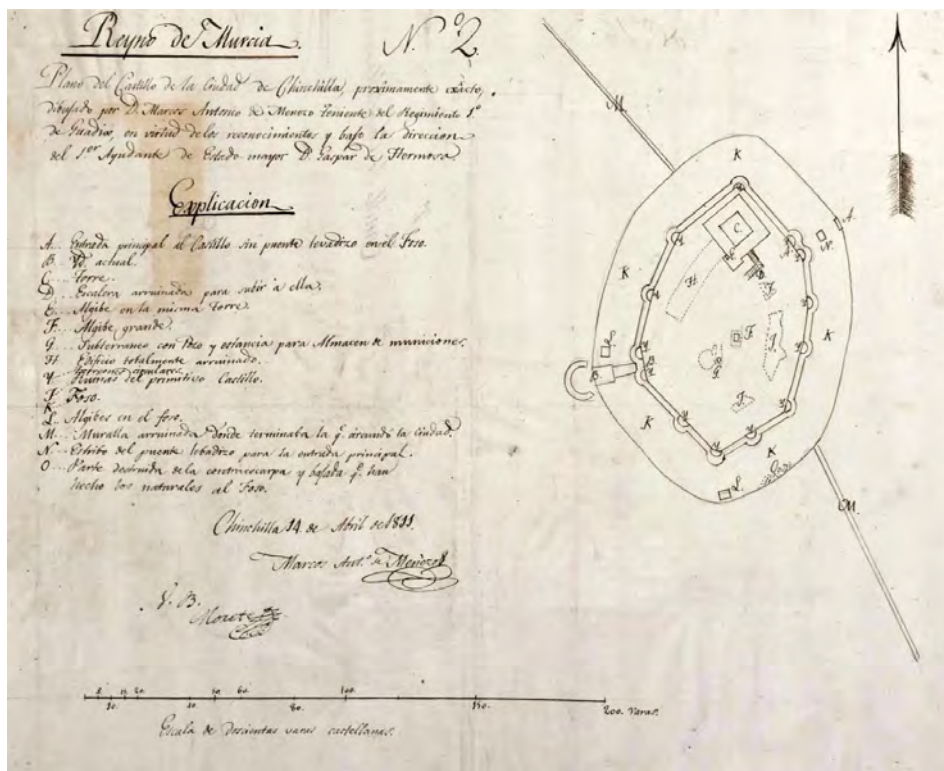 Reyno de Murcia.
N.º 2.
Plano del Castillo de la Ciudad de Chinchilla, proximamente exâcto,
dibujado por D. Marcos Antonio de Teniente del Regimiento 1.º
de Guadix, en virtud de los reconocimientos y bajo la direccion
del 1.or Ayudante de Estado mayor D. Gaspar de Hermosa
Explicacion
A... Entrada principal al Castillo sin puente levadizo en el Foso.
B. Yd. actual.
C... Torre.
D... Escalera arruinada para subir á ella.
E... Algibe en la misma Torre.
F... Algibe grande.
G... Subterraneo con Pozo y estancia para Almacen de municiones.
H... Edificio totalmente arruinado.
Y... Torreones circulares.
J... Ruinas del primitivo Castillo.
K... Foso.
L... Algibes en el foso.
M... Muralla arruinada donde terminaba la q.e circundó la Ciudad.
N... Estribo del puente lebadizo para la entrada principal.
O... Parte destruida de la contraescarpa y bajada q.e han
hecho los naturales al Foso.
Chinchilla 14. de Abril de 1811.
Marcos Ant.º de
V. B.
10. 20. 40. 60. 80. 100. 150. 200. Varas.
Escala de doscientas varas castellanas.
M.
K
A.
N.
C.
K
H
K
F.
J.
K
L.
B.
G.
K
J.
K
K
L.
M.